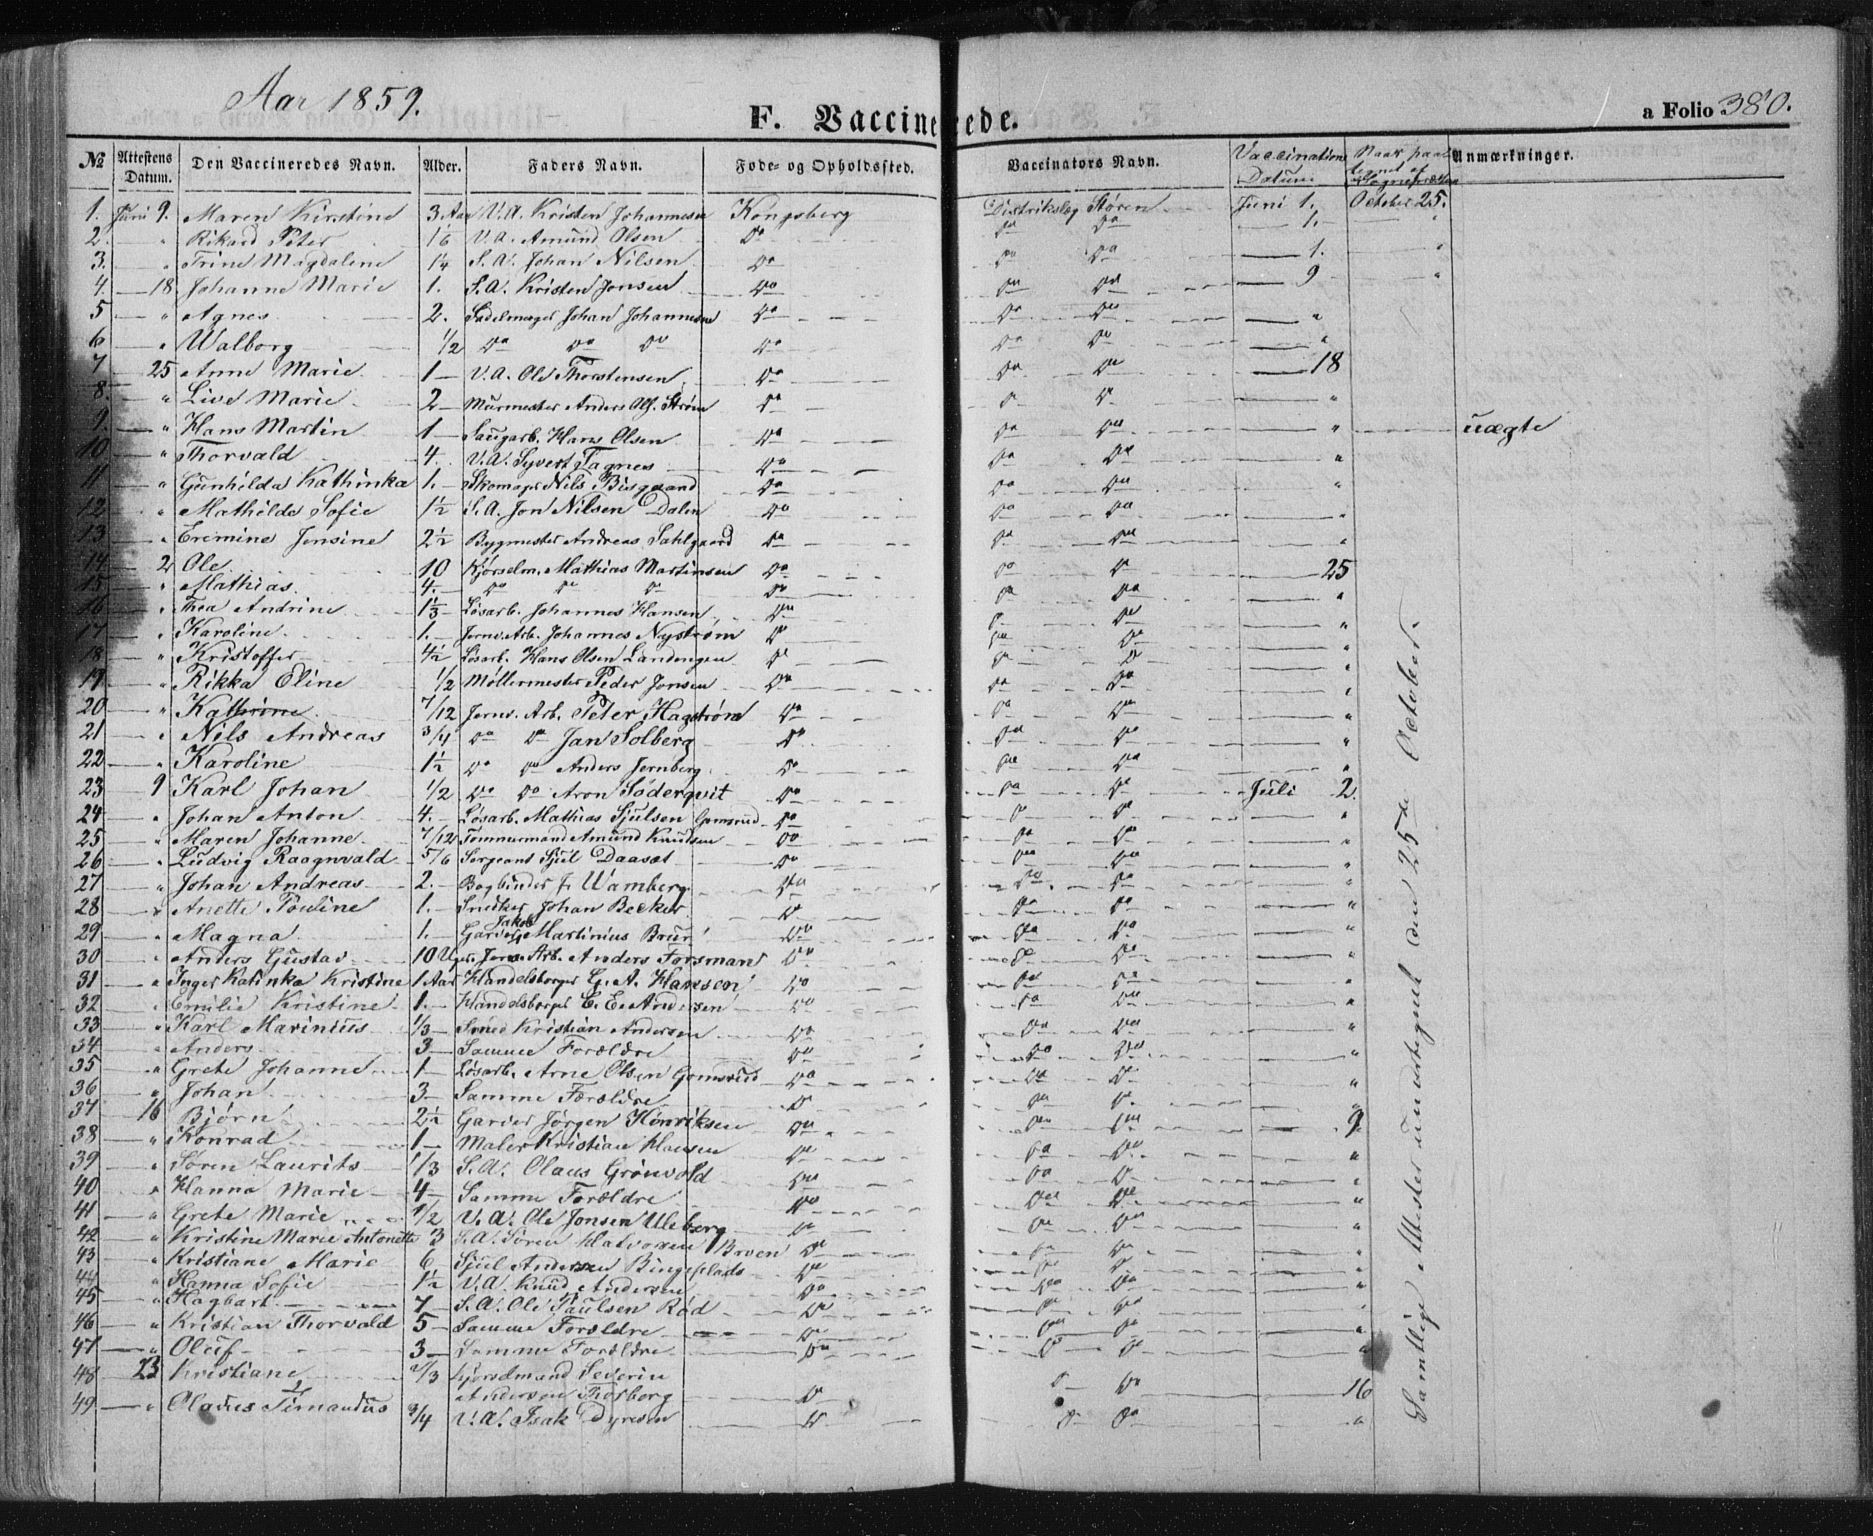 Aar 1859.
F. Vaccinerede.
a Folio 380.
№ Attestens Datum. Den Vaccineredes Navn. Alder. Faders Navn. Føde- og Opholdssted. Vaccinators Navn. Vaccinations Datum Naar paategnet af Anmærkninger.
1. Juni 9. Maren Kirstine 3 Aar V.A. Kristen Johannesen Kongsberg Distriktslæg Støren Juni 1. October 25.
2. " Rikard Peter 1/6 V.A. Amund Olsen Do Do Do 1. "
3. " Trine Magdalene 1/4 S.A. Johan Nilsen Do Do Do 1. "
4. 18 Johanne Marie 1. S.A. Kristen Jonsen Do Do Do 9 "
5 " Agnes 2. Sadelmager Johan Johannesen Do Do Do "
6 " Walborg 1/2 Do Do Do Do Do Do "
7 25 Anne Marie 1 V.A. Ole Thorstensen Do Do Do 18
8. " Live Marie 2 Murmester Anders Olf. Strøm Do Do Do "
9. " Hans Martin 1 Saugarb. Hans Olsen Do Do Do " uægte
10 " Thorvald 4. V.A. Syvert Fagnes Do Do Do "
11 " Gunhilda Kathinka 1. Skomager Nils Bisgaard Do Do Do "
12 " Mathilde Sofie 1½ S.A. Jon Nilsen Dalen Do Do Do "
13 " Eremine Jensine 2½ Bygmester Andreas Dahlgaard Do Do Do "
14 2 Ole 10 Kjørselm. Mathias Martinsen Do Do Do 25
15 " Mathias 4. Do Do Do Do Do Do "
16 " Thea Andrine 1⅓ Løsarb. Johannes Hansen Do Do Do "
17 " Karoline 1. Jernv. Arb. Johannes Nystrøm Do Do Do "
18 " Kristoffer 4½ Løsarb. Hans Olsen Landengen Do Do Do "
19 " Rikka Eline 1/2 Møllermester Peder Jonsen Do Do Do "
20 " Kathrine 7/12 Jernv. Arb. Peter Hagstrøm Do Do Do "
21 " Nils Andreas 3/4 Do Do Jan Solberg Do Do Do "
22 Karoline 1½ Do Do Anders Jernberg Do Do Do "
23 9 Karl Johan 1/2 Do Do Aron Søderqvit Do Do Do Juli 2.
24 " Johan Anton 4. Løsarb. Mathias Sjulsen Gomsrud Do Do Do "
25 " Maren Johanne 7/12 Tømmermand Amund Knudsen Do Do Do "
26 " Ludvig Raagnvald 5/6 Sergeant Sjul Daasæt Do Do Do "
27 " Johan Andreas 2. Bogbinder J. Wamberg Do Do Do "
28 " Anette Pouline 1. Snedker Johan Becker Do Do Do "
29 " Magna 1. Garver Jakob Martinius Bruun Do Do Do "
30 " Anders Gustav 10 Uger Jernv. Arb. Anders Forsmand Do Do Do "
31 " Inger Katinka Kristine 1 Aar Handelsborger G. A. Hansen Do Do Do "
32 " Emilie Kristine 1. Handelsborger C. E. Andersen Do Do Do "
33 " Karl Marinius 1/3 Smed Kristian Andersen Do Do Do "
34 " Anders 3 Samme Forældre Do Do Do "
35 " Grete Johanne 1 Løsarb. Arne Olsen Gomsrud Do Do Do "
36 " Johan 3 Samme Forældre Do Do Do "
37 16 Bjørn 2½ Garver Jørgen Henriksen Do Do Do 9
38 " Konrad 1 Maler Kristian Hansen Do Do Do "
39 " Søren Laurits 1/3 S.A. Olaus Grønvold Do Do Do "
40 " Hanna Marie 4 Samme Forældre Do Do Do "
41 " Grete Marie 1/2 V.A. Ole Jonsen Uleberg Do Do Do "
42 " Kristine Marie Antonette 3 S.A. Søren Halvorsen Broen Do Do Do "
43 " Kristiane Marie 6 Sjul Andersen Bingeplads Do Do Do "
44 " Hanna Sofie 1½ V.A. Knud Andersen Do Do Do "
45 " Hagbart 7 S.A. Ole Paulsen Rød Do Do Do "
46 " Kristian Thorvald 5 Samme Forældre Do Do Do "
47 " Oluf 3 Samme Forældre Do Do Do "
48 23 Kristiane 2/3 Kjørselmand Severin
Andersen Thorborg Do Do Do 16
49 " Olaves Fernandus 3/4 V.A. Isak Dyresen Do Do Do "
Samtlige Attester undertegnet den 25de October.